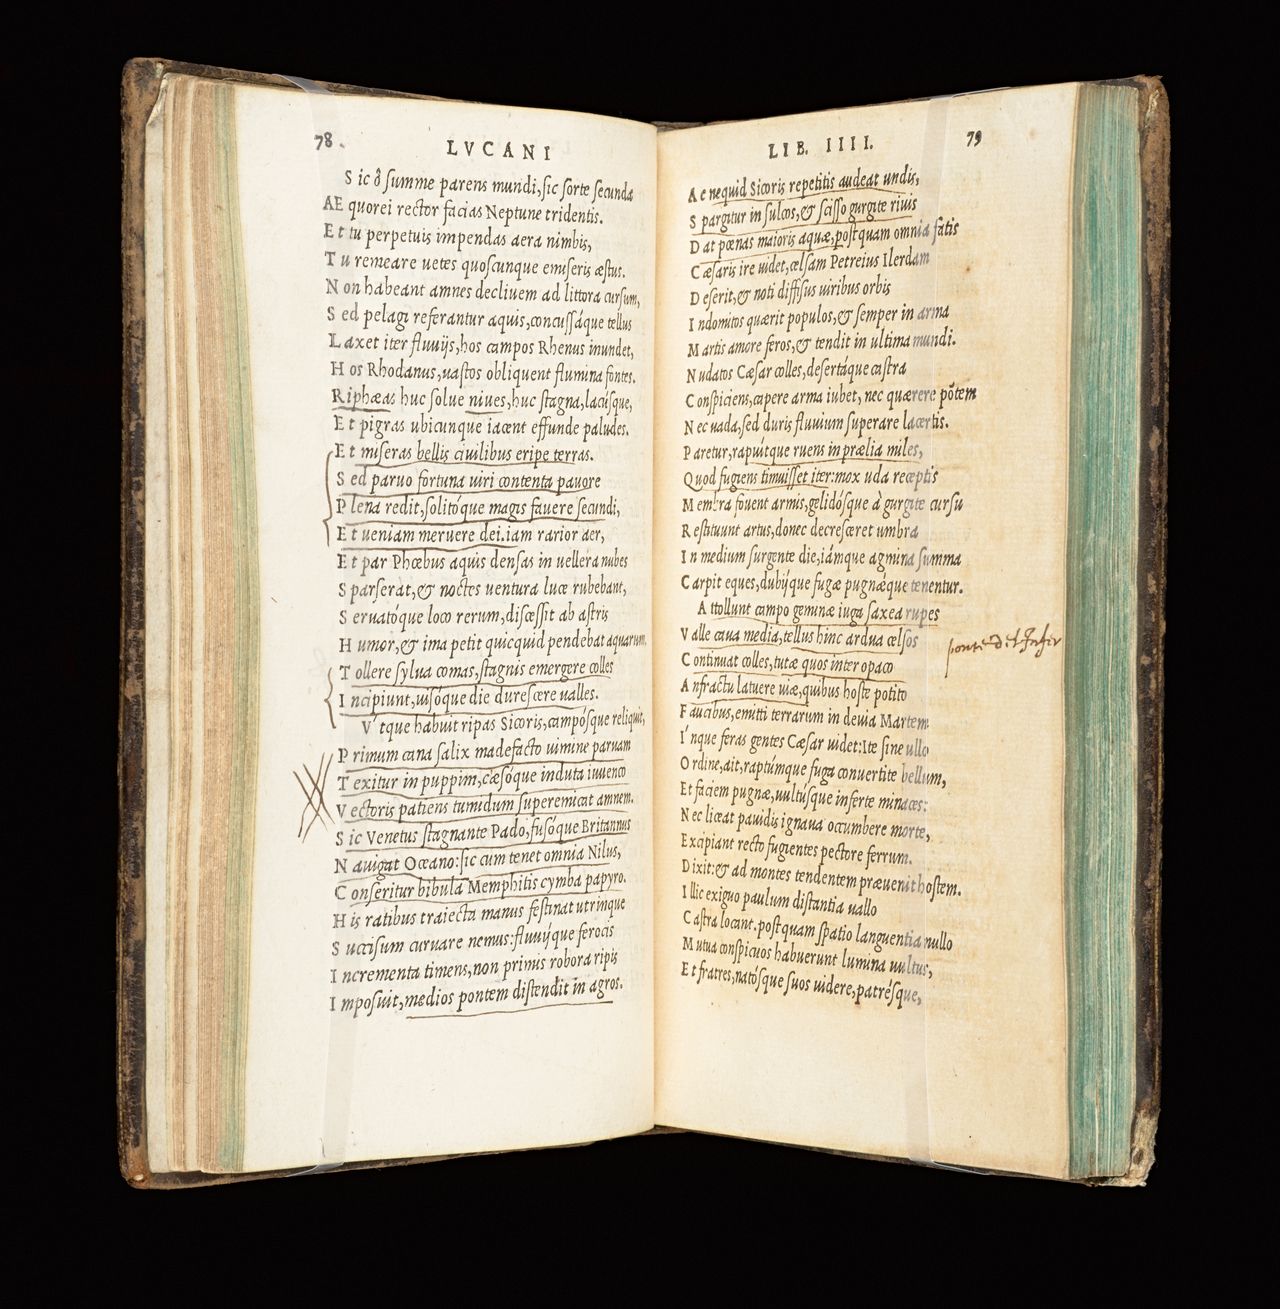 78.
LVCANI
S ic ô summe parens mundi, sic sorte secunda
AE quorei rector facias Neptune tridentis.
E t tu perpetuis impendas aera nimbis,
T u remeare uetes quoscunque emiseris æstus.
N on habeant amnes decliuem ad littora cursum,
S ed pelagi referantur aquis, concussáque tellus
L axet iter fluuijs, hos campos Rhenus inundet,
H os Rhodanus, uastos obliquent flumina fontes.
Riphæas huc solue niues, huc stagna, lacúsque,
E t pigras ubicunque iacent effunde paludes.
E t miseras bellis ciuilibus eripe terras.
S ed paruo fortuna uiri contenta pauore
P lena redit, solitóque magis fauere secundi,
E t ueniam meruere dei. iam rarior aer,
E t par Phœbus aquis densas in uellera nubes
S parserat, & noctes uentura luce rubebant,
S eruatóque loco rerum, discessit ab astris
H umor, & ima petit quicquid pendebat aquarum.
T ollere sylua comas, stagnis emergere colles
I ncipiunt, uisóque die durescere ualles.
V´ tque habuit ripas Sicoris, campósque reliquit,
P rimum cana salix madefacto uimine paruam
T exitur in puppim, cæsóque induta iuuenco
V ectoris patiens tumidum superemicat amnem.
S ic Venetus stagnante Pado, fusóque Britannus
N auigat Oceano: sic cum tenet omnia Nilus,
C onseritur bibula Memphitis cymba papyro.
H is ratibus traiecta manus festinat utrinque
S uccisum curuare nemus: fluuijque ferocis
I ncrementa timens, non primis robora ripis
I mposuit, medios pontem distendit in agros.
LIB. IIII.
79
A c nequid Sicoris repetitis audeat undis,
S pargitur in sulcos, & scisso gurgite riuis
D at pœnas maioris aquæ, postquam omnia fatis
C æsaris ire uidet, celsam Petreius Ilerdam
D eserit, & noti diffisus uiribus orbis
I ndomitos quærit populos, & semper in arma
M artis amore feros, & tendit in ultima mundi.
N udatos Cæsar colles, desertáque castra
C onspiciens, capere arma iubet, nec quærere põtem
N ec uada, sed duris fluuium superare lacertis.
P aretur, rapuítque ruens in prælia miles,
Quod fugiens timuisset iter: mox uda receptis
M embra fouent armis, gelidósque à gurgite cursu
R estituunt artus, donec decresceret umbra
I n medium surgente die, iámque agmina summa
C arpit eques, dubijque fugæ pugnæque tenentur.
A ttollunt campo geminæ iuga saxea rupes
V alle caua media, tellus hinc ardua celsos
C ontinuat colles, tutæ quos inter opaco
A nfractu latuere uiæ, quibus hoste potito
F aucibus, emitti terrarum in deuia Martem
I´ nque feras gentes Cæsar uidet: Ite sine ullo
O rdine, ait, raptúmque fuga conuertite bellum,
E t faciem pugnæ, uultúsque inferte minaces:
N ec liceat pauidis ignaua occumbere morte,
E xcipiant recto fugientes pectore ferrum.
D ixit: & ad montes tendentem præuenit hostem.
I llic exiguo paulum distantia uallo
C astra locant. postquam spatio languentia nullo
M utua conspicuos habuerunt lumina uultus,
E t fratres, natósque suos uidere, patrésque,